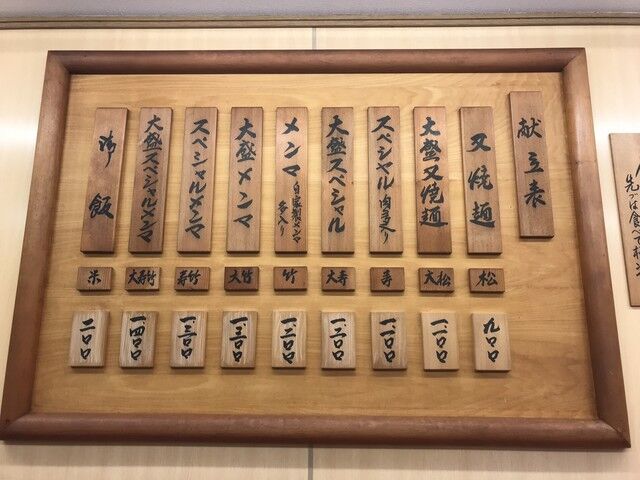 献立表
又焼麺
松
九〇〇
大盛又焼麺
大松
一.一〇〇
スペシャル 肉多入り
寿
一.一〇〇
大盛スペシャル
大寿
一.二〇〇
メンマ 自家製メンマ多入り
竹
大盛メンマ
大竹
一.三〇〇
スペシャルメンマ
寿竹
一.三〇〇
大盛スペシャルメンマ
大寿竹
一.四〇〇
御飯
米
二〇〇